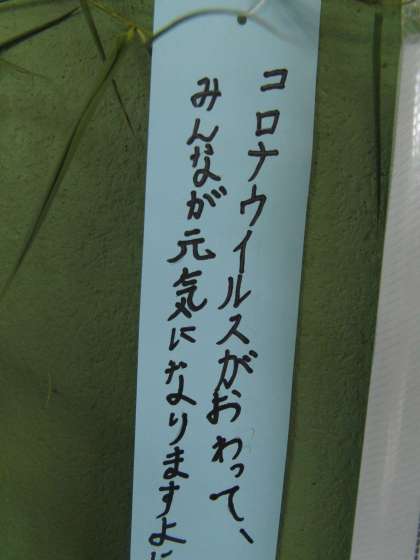 コロナウイルスがおわって、
みんなが元気になりますよ